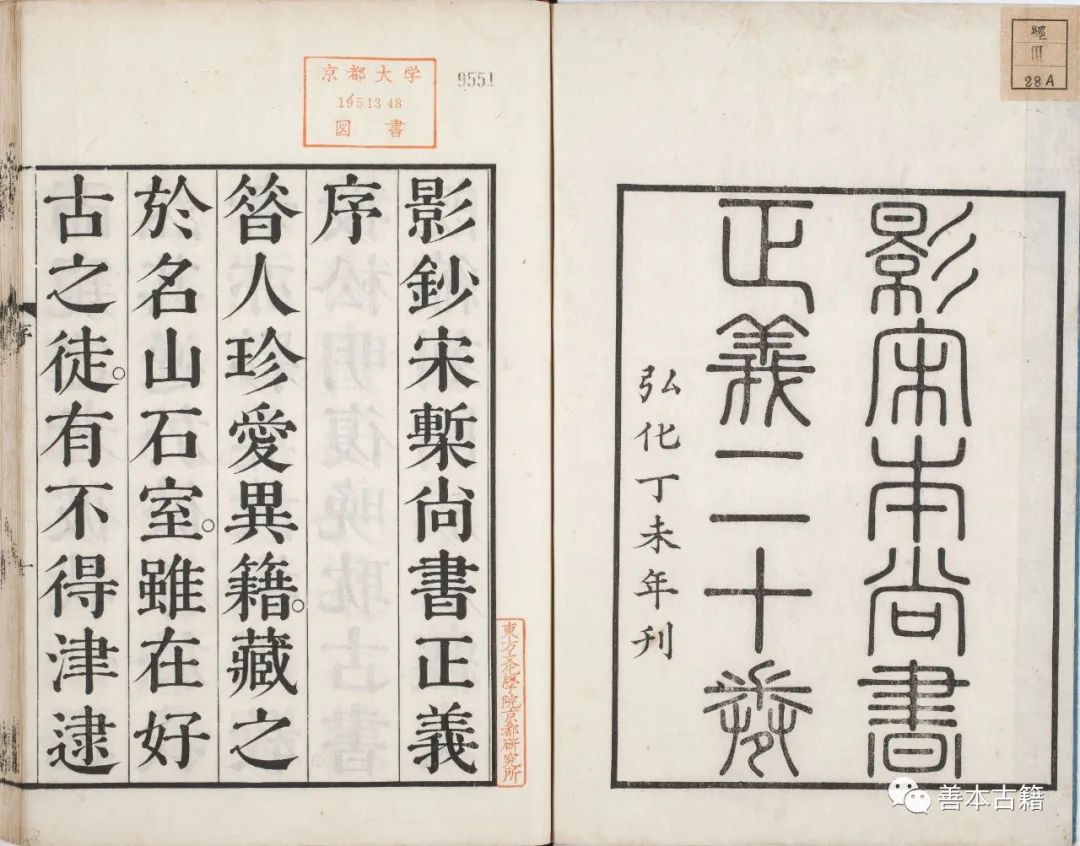 影宋本尚書
正義二十卷
弘化丁未年刊
28A
善本古籍
9551
京都大学
1951348
図書
影鈔宋槧尙書正義
序
昝人珍愛異籍。藏之
於名山石室。雖在好
古之徒。有不得津逮
序
一
東方文化學院京都研究所